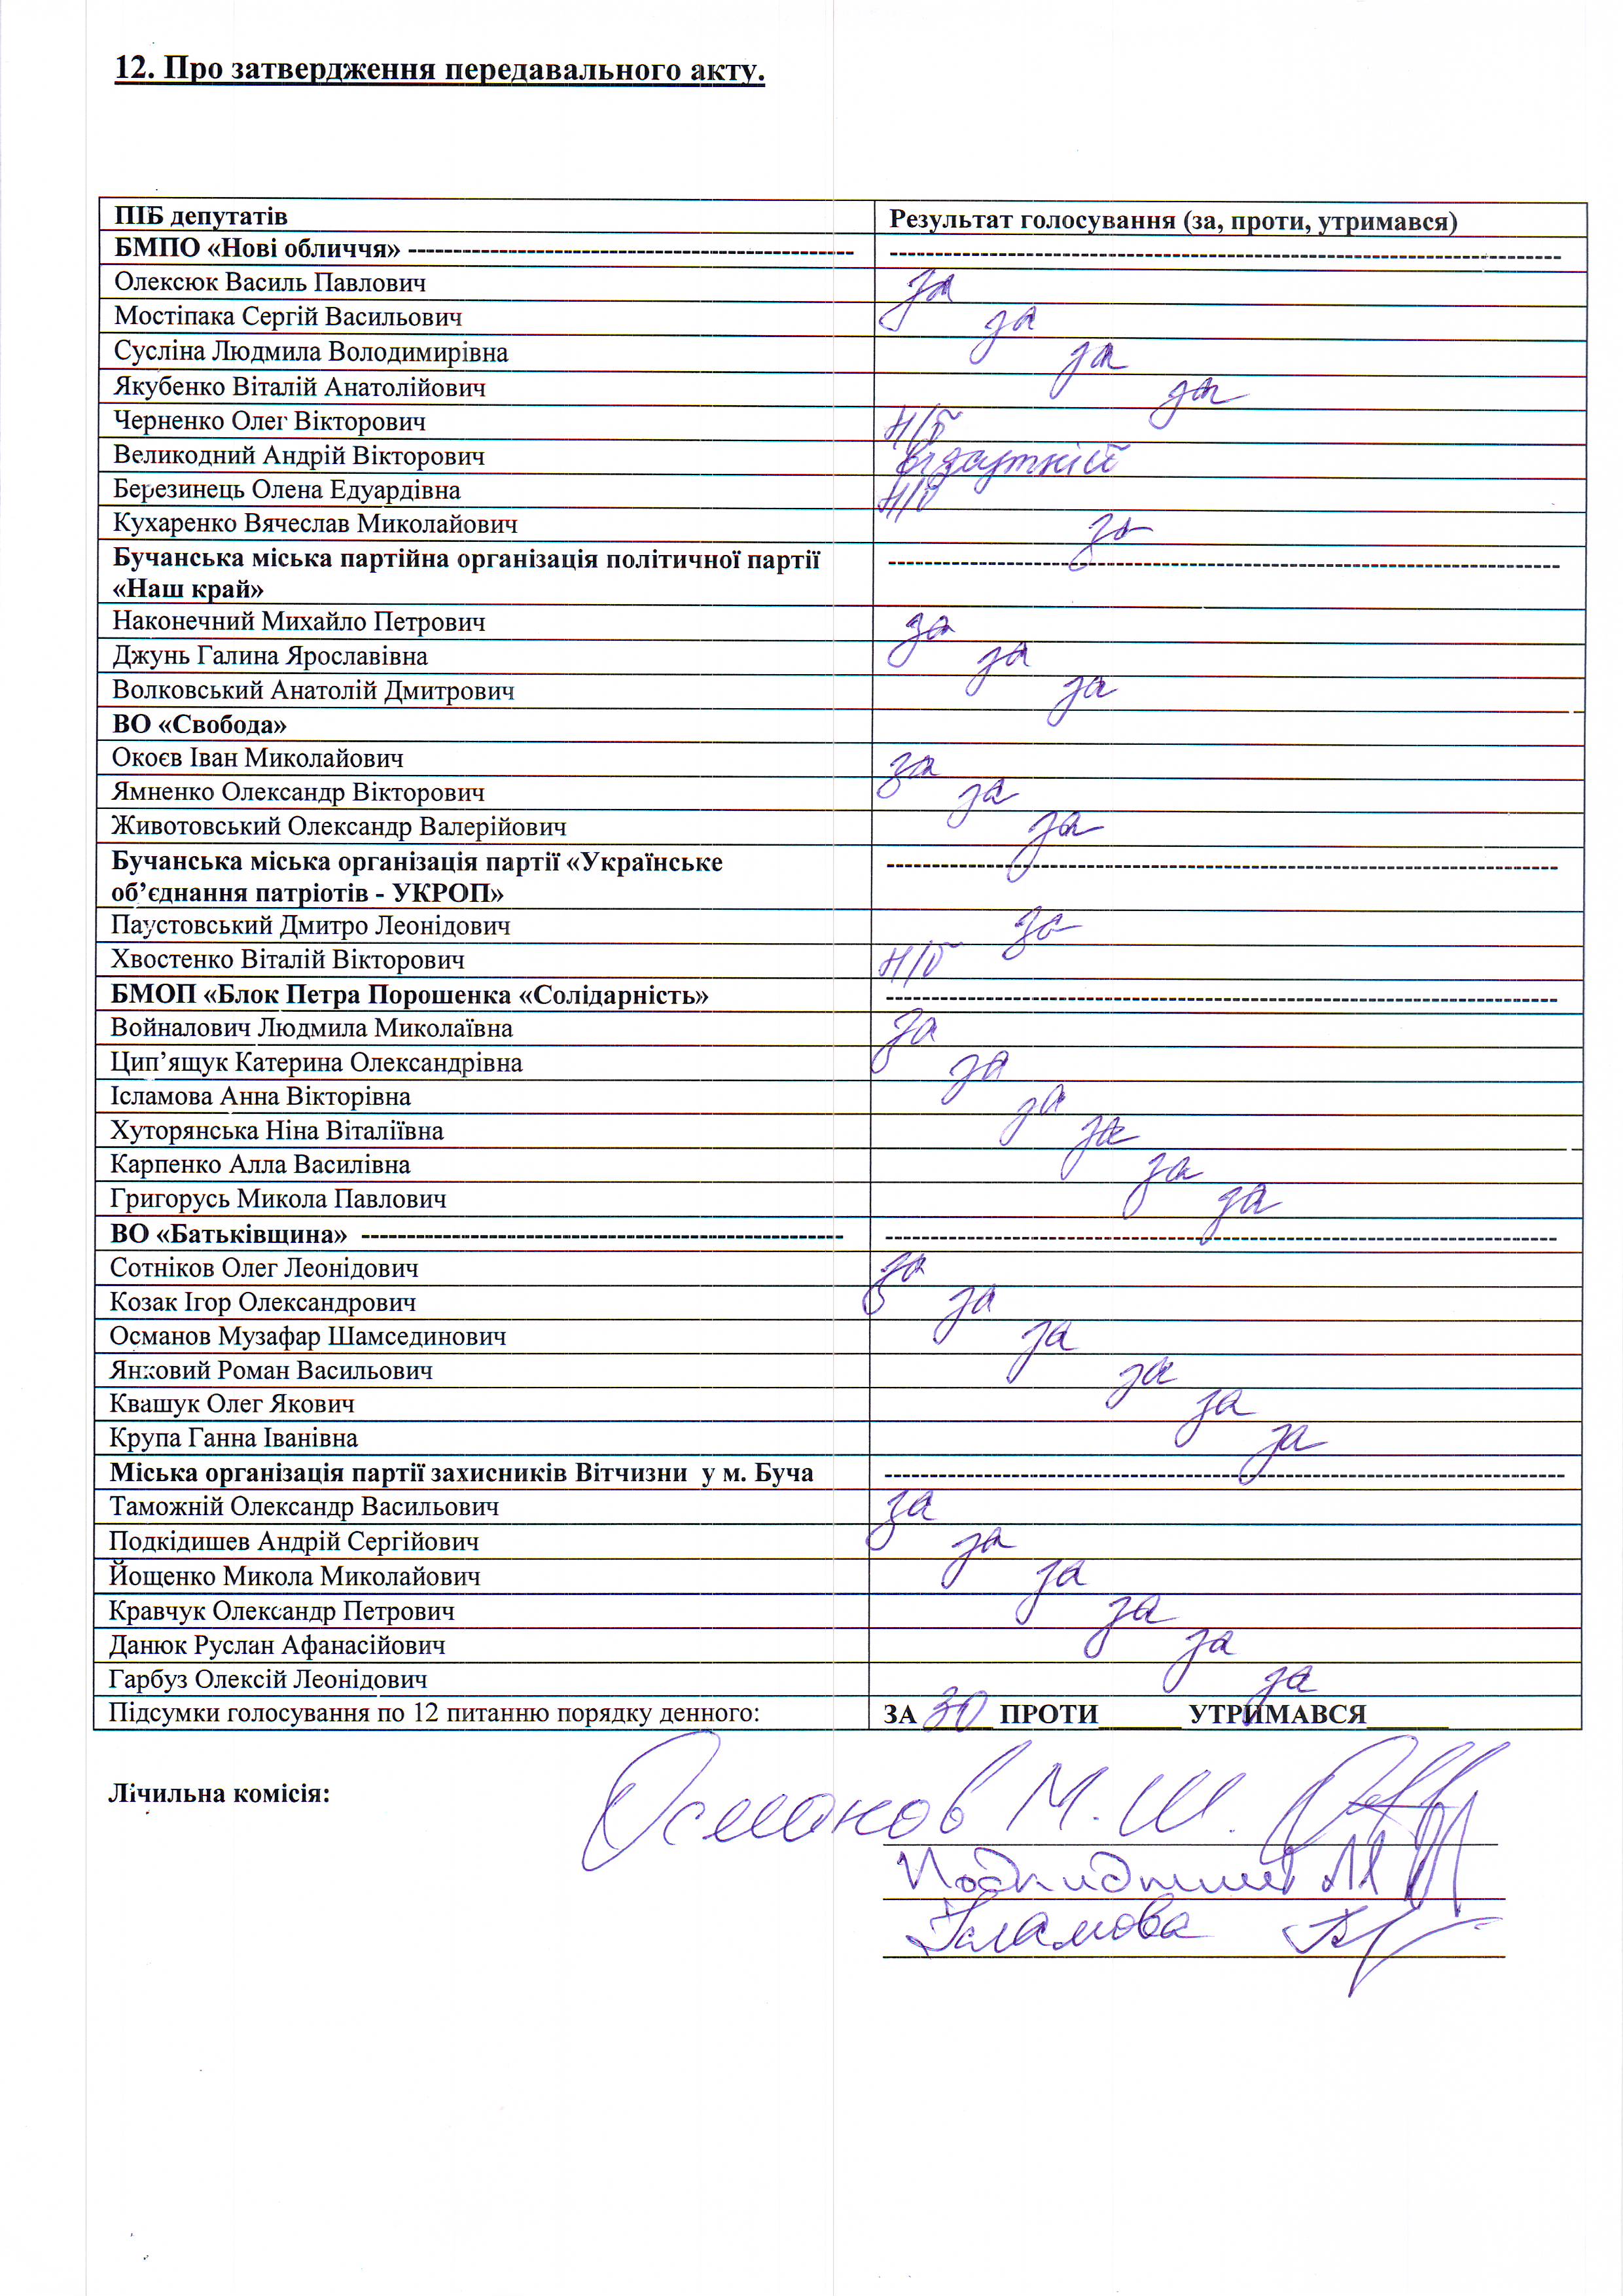 12. Про затвердження передавального акту.
ПІБ депутатів Результат голосування (за, проти, утримався)
БМПО «Нові обличчя» ------------------------------------------------- --------------------------------------------------------------------------
Олексюк Василь Павлович за
Мостіпака Сергій Васильович за
Сусліна Людмила Володимирівна за
Якубенко Віталій Анатолійович за
Черненко Олег Вікторович н/б
Великодний Андрій Вікторович відсутній
Березинець Олена Едуардівна н/б
Кухаренко Вячеслав Миколайович за
Бучанська міська партійна організація політичної партії --------------------------------------------------------------------------
«Наш край»
Наконечний Михайло Петрович за
Джунь Галина Ярославівна за
Волковський Анатолій Дмитрович за
ВО «Свобода»
Окоєв Іван Миколайович за
Ямненко Олександр Вікторович за
Животовський Олександр Валерійович за
Бучанська міська організація партії «Українське --------------------------------------------------------------------------
об’єднання патріотів - УКРОП»
Паустовський Дмитро Леонідович за
Хвостенко Віталій Вікторович н/б
БМОП «Блок Петра Порошенка «Солідарність» --------------------------------------------------------------------------
Войналович Людмила Миколаївна за
Цип’ящук Катерина Олександрівна за
Ісламова Анна Вікторівна за
Хуторянська Ніна Віталіївна за
Карпенко Алла Василівна за
Григорусь Микола Павлович за
ВО «Батьківщина» ----------------------------------------------------- --------------------------------------------------------------------------
Сотніков Олег Леонідович за
Козак Ігор Олександрович за
Османов Музафар Шамсединович за
Янковий Роман Васильович за
Квашук Олег Якович за
Крупа Ганна Іванівна за
Міська організація партії захисників Вітчизни у м. Буча ---------------------------------------------------------------------------
Таможній Олександр Васильович за
Подкідишев Андрій Сергійович за
Йощенко Микола Миколайович за
Кравчук Олександр Петрович за
Данюк Руслан Афанасійович за
Гарбуз Олексій Леонідович за
Підсумки голосування по 12 питанню порядку денного: ЗА 30 ПРОТИ______ УТРИМАВСЯ______
Лічильна комісія: Османов М. Ш.
Ісламова